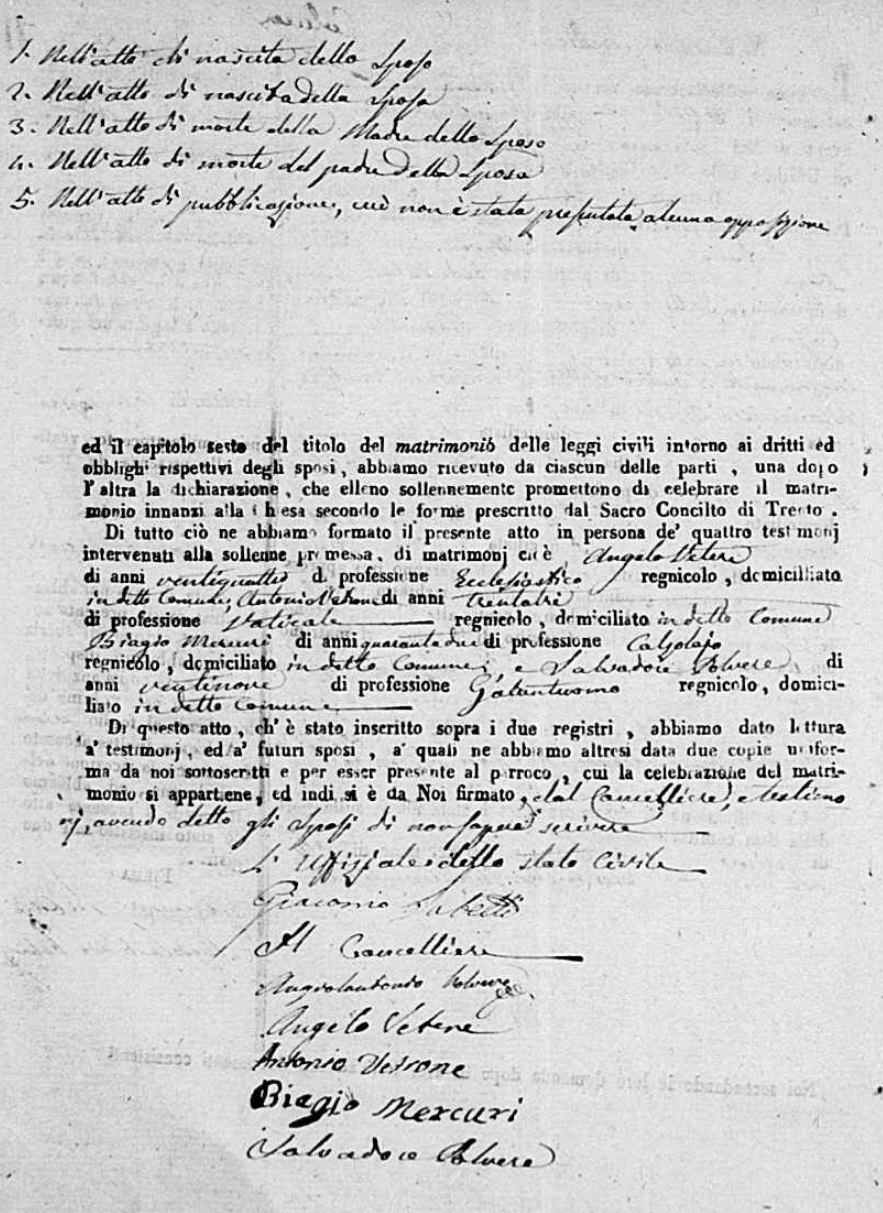 1. Nell'atto di nascita dello Sposo
2. Nell'atto di nascita della Sposa
3. Nell'atto di morte della Madre dello Sposo
4. Nell'atto di morte del padre della Sposa
5. Nell'atto di pubblicazione, cui non è stata presentata alcuna opposizione
ed il capitolo sesto del titolo del matrimonio delle leggi civili intorno ai dritti ed
obblighi rispettivi degli sposi, abbiamo ricevuto da ciascun delle parti, una dopo
l'altra la dichiarazione, che elleno sollennemente promettono di celebrare il matri-
monio innanzi alla Chiesa secondo le forme prescritto dal Sacro Concilto di Trento.
Di tutto ciò ne abbiamo formato il presente atto in persona de' quattro testimonj
intervenuti alla sollenne promessa, di matrimonj cioè Angelo Vetere
di anni ventiquattro di professione Ecclesiastico regnicolo, domiciliato
in detto Comune, Antonio Verrone di anni trentatrè
di professione Vaticale regnicolo, domiciliato in detto Comune
Biagio Mercuri di anni quarantadue di professione Calzolajo
regnicolo, domiciliato in detto Comune, e Salvadore Polvere, di
anni ventinove di professione Galantuomo regnicolo, domici-
liato in detto Comune
Di questo atto, ch'è stato inscritto sopra i due registri, abbiamo dato lettura
a' testimonj, ed a' futuri sposi, a' quali ne abbiamo altresì data due copie unifor-
ma da noi sottoscritti e per esser presente al parroco, cui la celebrazione del matri-
monio si appartiene, ed indi si è da Noi firmato, dal Cancelliere, e testimo
nj, avendo detto gli Sposi di non sapere scrivere
L'Uffiziale dello stato Civile
Giacomo
Il Cancelliere
Angiolantonio Polvere
Angelo Vetere
Antonio Verrone
Biagio Mercuri
Salvadore Polvere